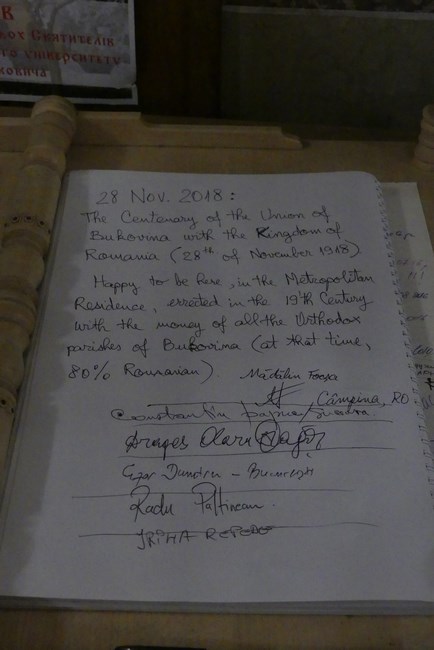 В
Святителів
університету
28 Nov. 2018:
The Centenary of the Union of
Bukovina with the Kingdom of
Romania (28th of November 1918)
Happy to be here, in the Metropolitan
Residence, errected in the 19th Century
with the money of all the Orthodox
parishes of Bukovina (at that time,
80% Romanian)
Mădălin Focșa
Câmpina, RO
Constantin
Dragoș Olaru
Dumitru - București
Radu Paltinean
IRINA